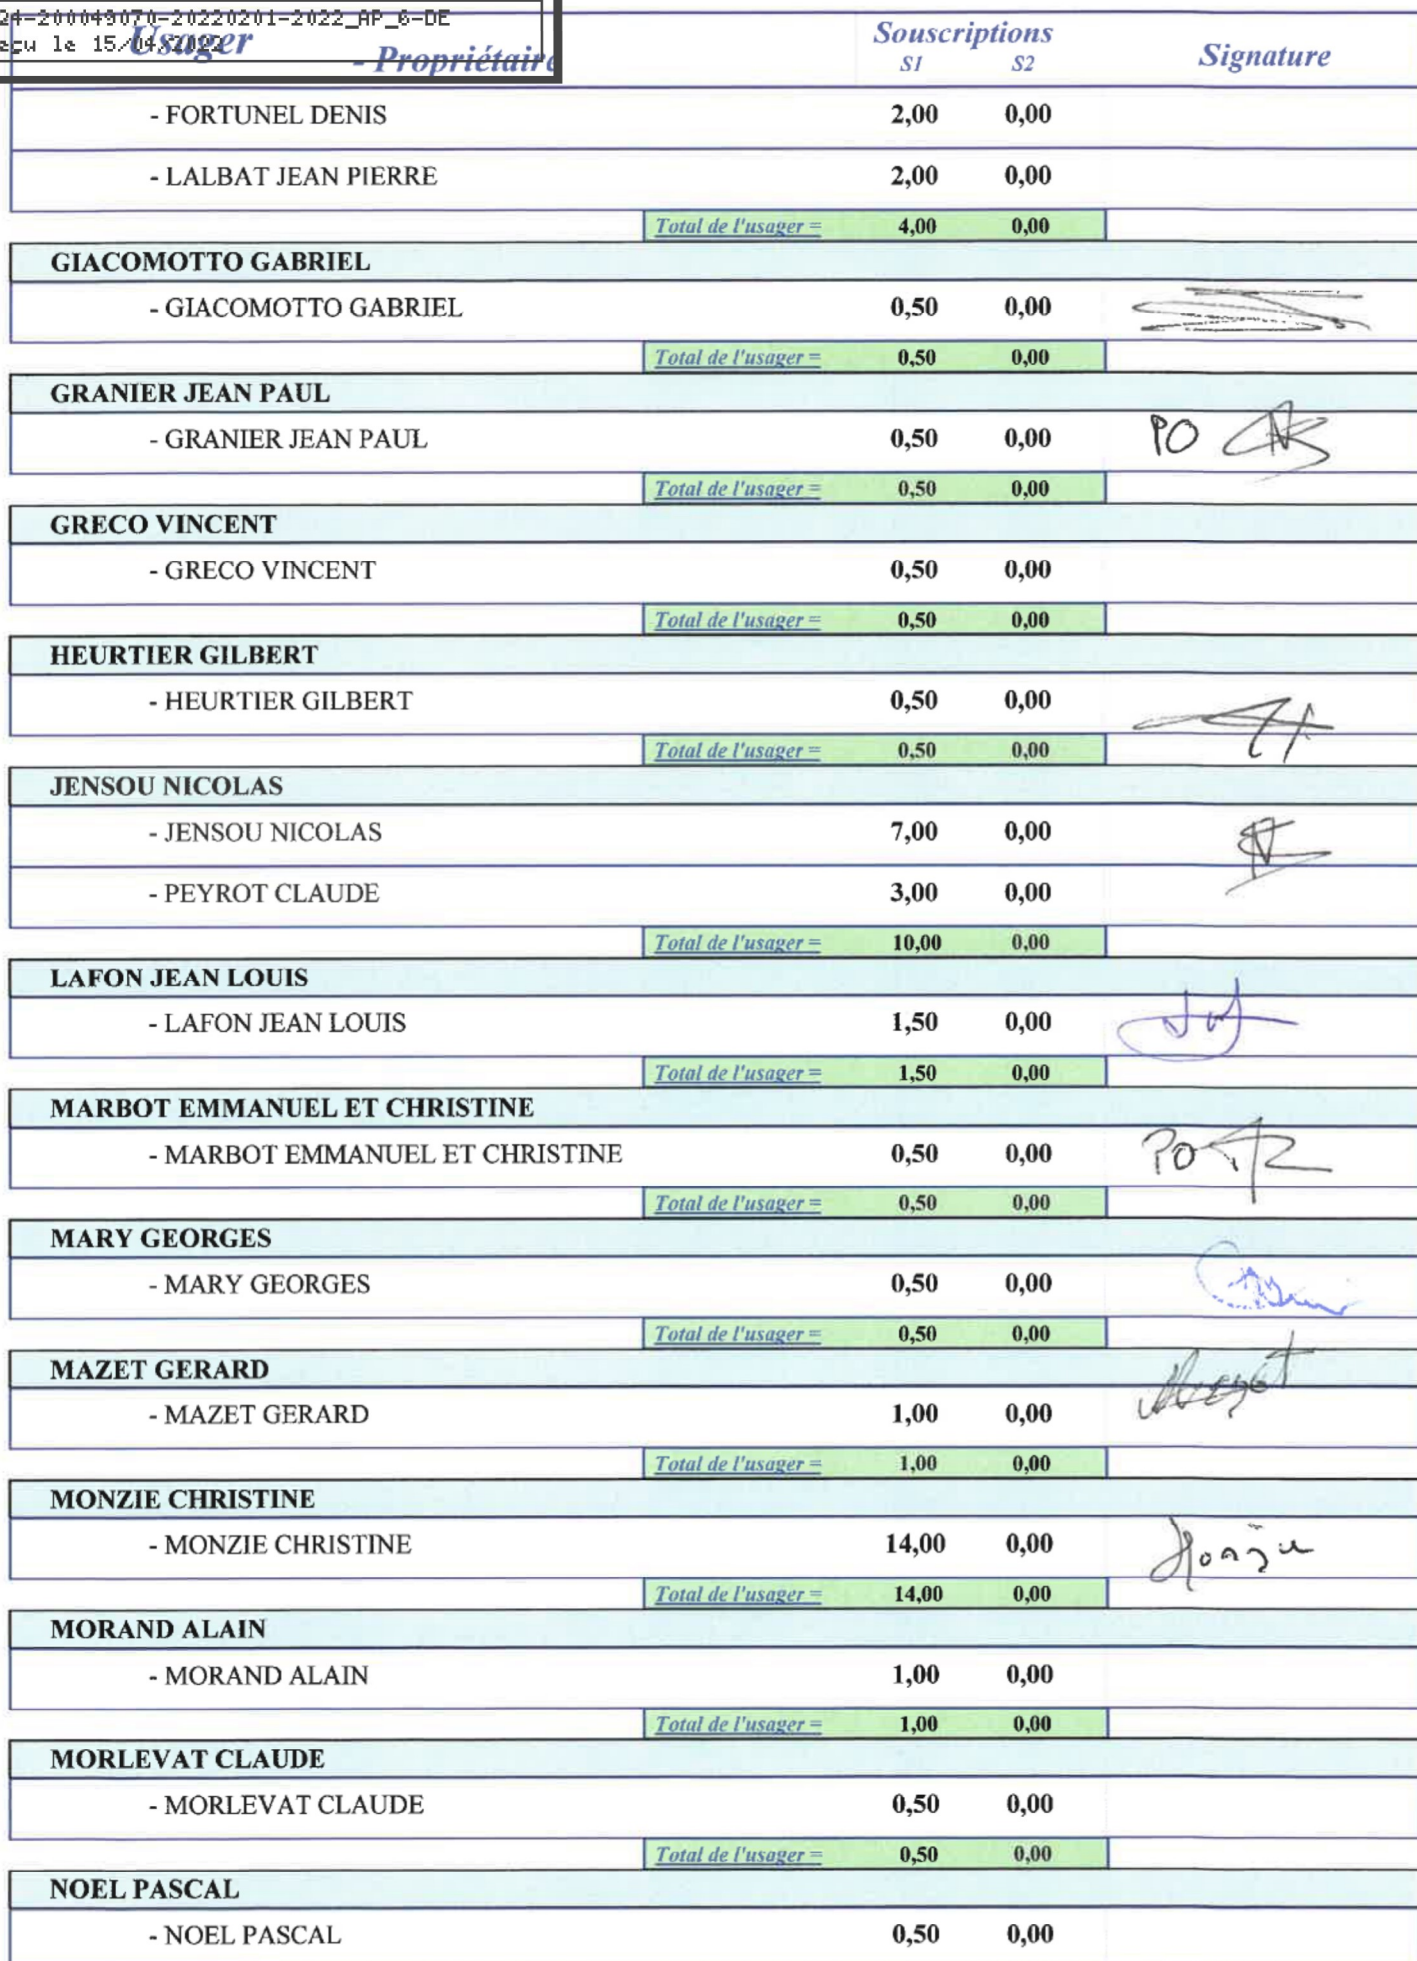 24-200049070-20220201-2022_AP_6-DE
eçu le 15/04/2022
Usager - Propriétaire Souscriptions Signature
S1 S2
- FORTUNEL DENIS 2,00 0,00
- LALBAT JEAN PIERRE 2,00 0,00
Total de l'usager = 4,00 0,00
GIACOMOTTO GABRIEL
- GIACOMOTTO GABRIEL 0,50 0,00
Total de l'usager = 0,50 0,00
GRANIER JEAN PAUL
- GRANIER JEAN PAUL 0,50 0,00 PO
Total de l'usager = 0,50 0,00
GRECO VINCENT
- GRECO VINCENT 0,50 0,00
Total de l'usager = 0,50 0,00
HEURTIER GILBERT
- HEURTIER GILBERT 0,50 0,00
Total de l'usager = 0,50 0,00
JENSOU NICOLAS
- JENSOU NICOLAS 7,00 0,00
- PEYROT CLAUDE 3,00 0,00
Total de l'usager = 10,00 0,00
LAFON JEAN LOUIS
- LAFON JEAN LOUIS 1,50 0,00
Total de l'usager = 1,50 0,00
MARBOT EMMANUEL ET CHRISTINE
- MARBOT EMMANUEL ET CHRISTINE 0,50 0,00 PO
Total de l'usager = 0,50 0,00
MARY GEORGES
- MARY GEORGES 0,50 0,00
Total de l'usager = 0,50 0,00
MAZET GERARD
- MAZET GERARD 1,00 0,00
Total de l'usager = 1,00 0,00
MONZIE CHRISTINE
- MONZIE CHRISTINE 14,00 0,00
Total de l'usager = 14,00 0,00
MORAND ALAIN
- MORAND ALAIN 1,00 0,00
Total de l'usager = 1,00 0,00
MORLEVAT CLAUDE
- MORLEVAT CLAUDE 0,50 0,00
Total de l'usager = 0,50 0,00
NOEL PASCAL
- NOEL PASCAL 0,50 0,00